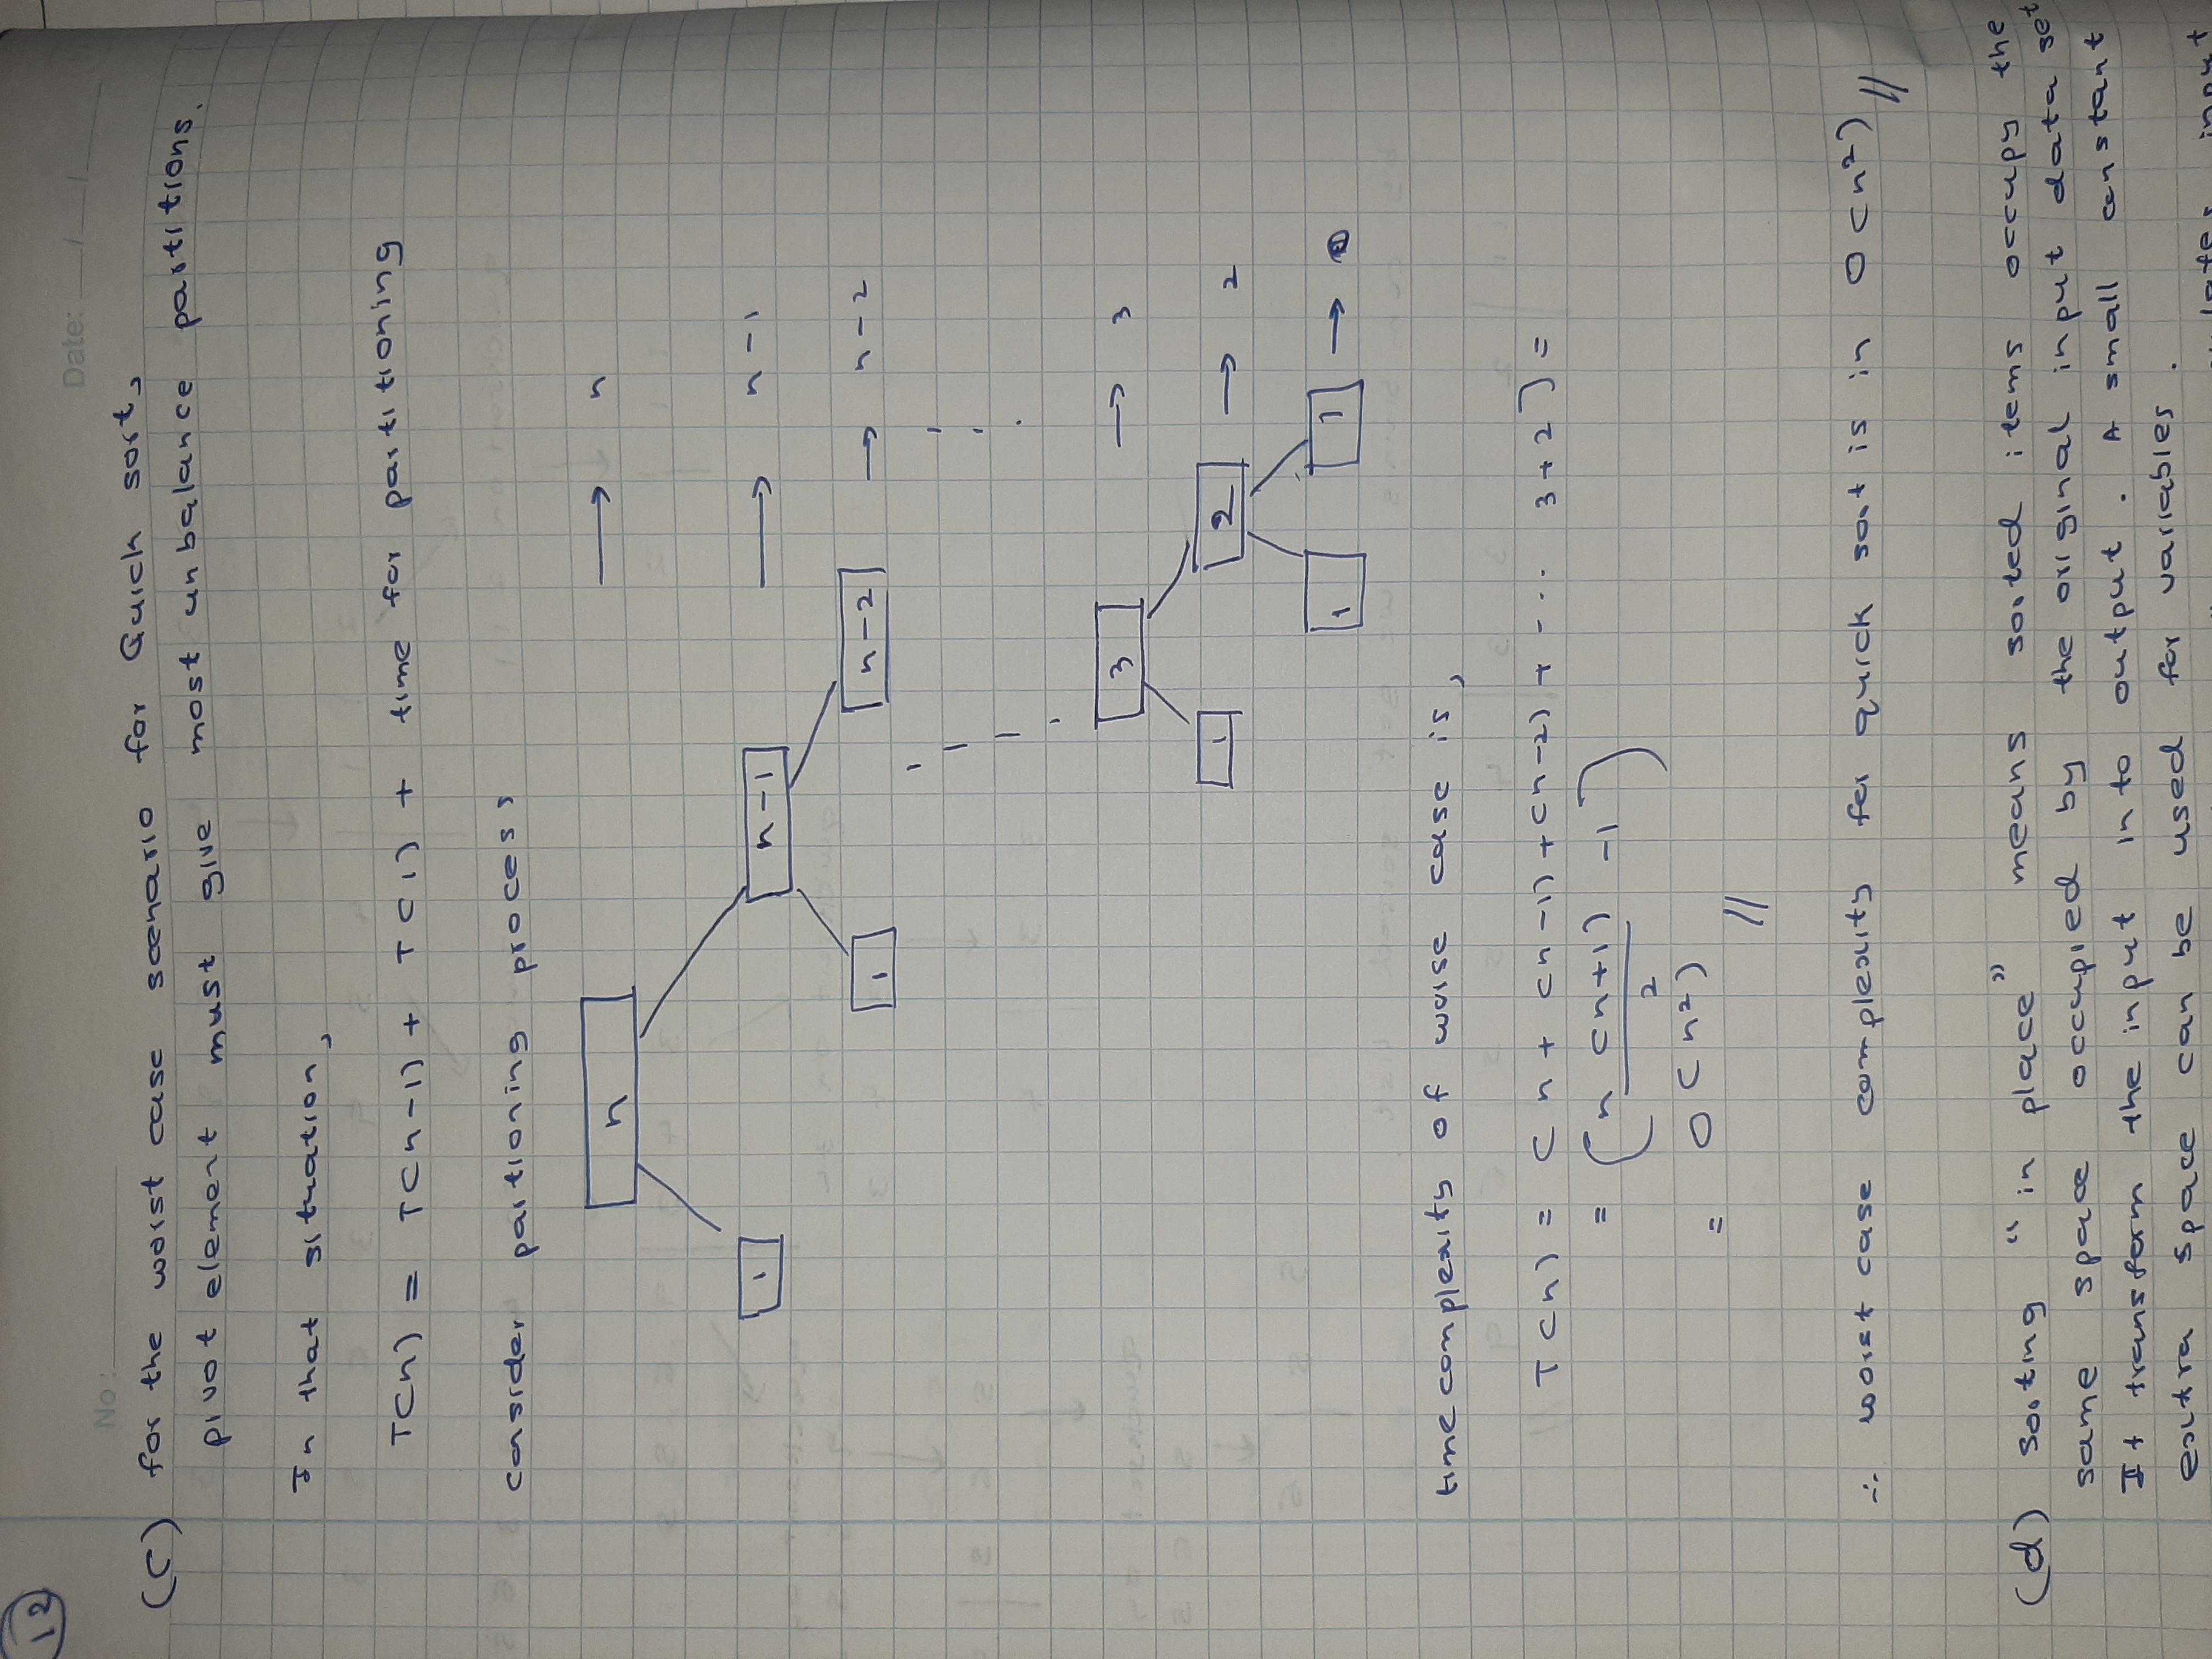 12
No :
Date: / /
(c) for the worst case scenario for Quick sort,
pivot element must give most unbalance partitions.
In that situation,
T(n) = T(n-1) + T(1) + time for partitioning
consider partioning process
n → n
1 n-1 → n-1
1 n-2 → n-2
3 → 3
1 2 → 2
1 1 →
time complexity of worse case is,
T(n) = (n + (n-1) + (n-2) + - ... 3+2) =
= (n (n+1)/2 -1)
= O(n²)
//
∴ worst case complexity for quick sort is in O(n²) //
(d) sorting "in place" means sorted items occupy the
same space occupied by the original input data set
It transform the input in to output . A small constant
extra space can be used for variables .
input